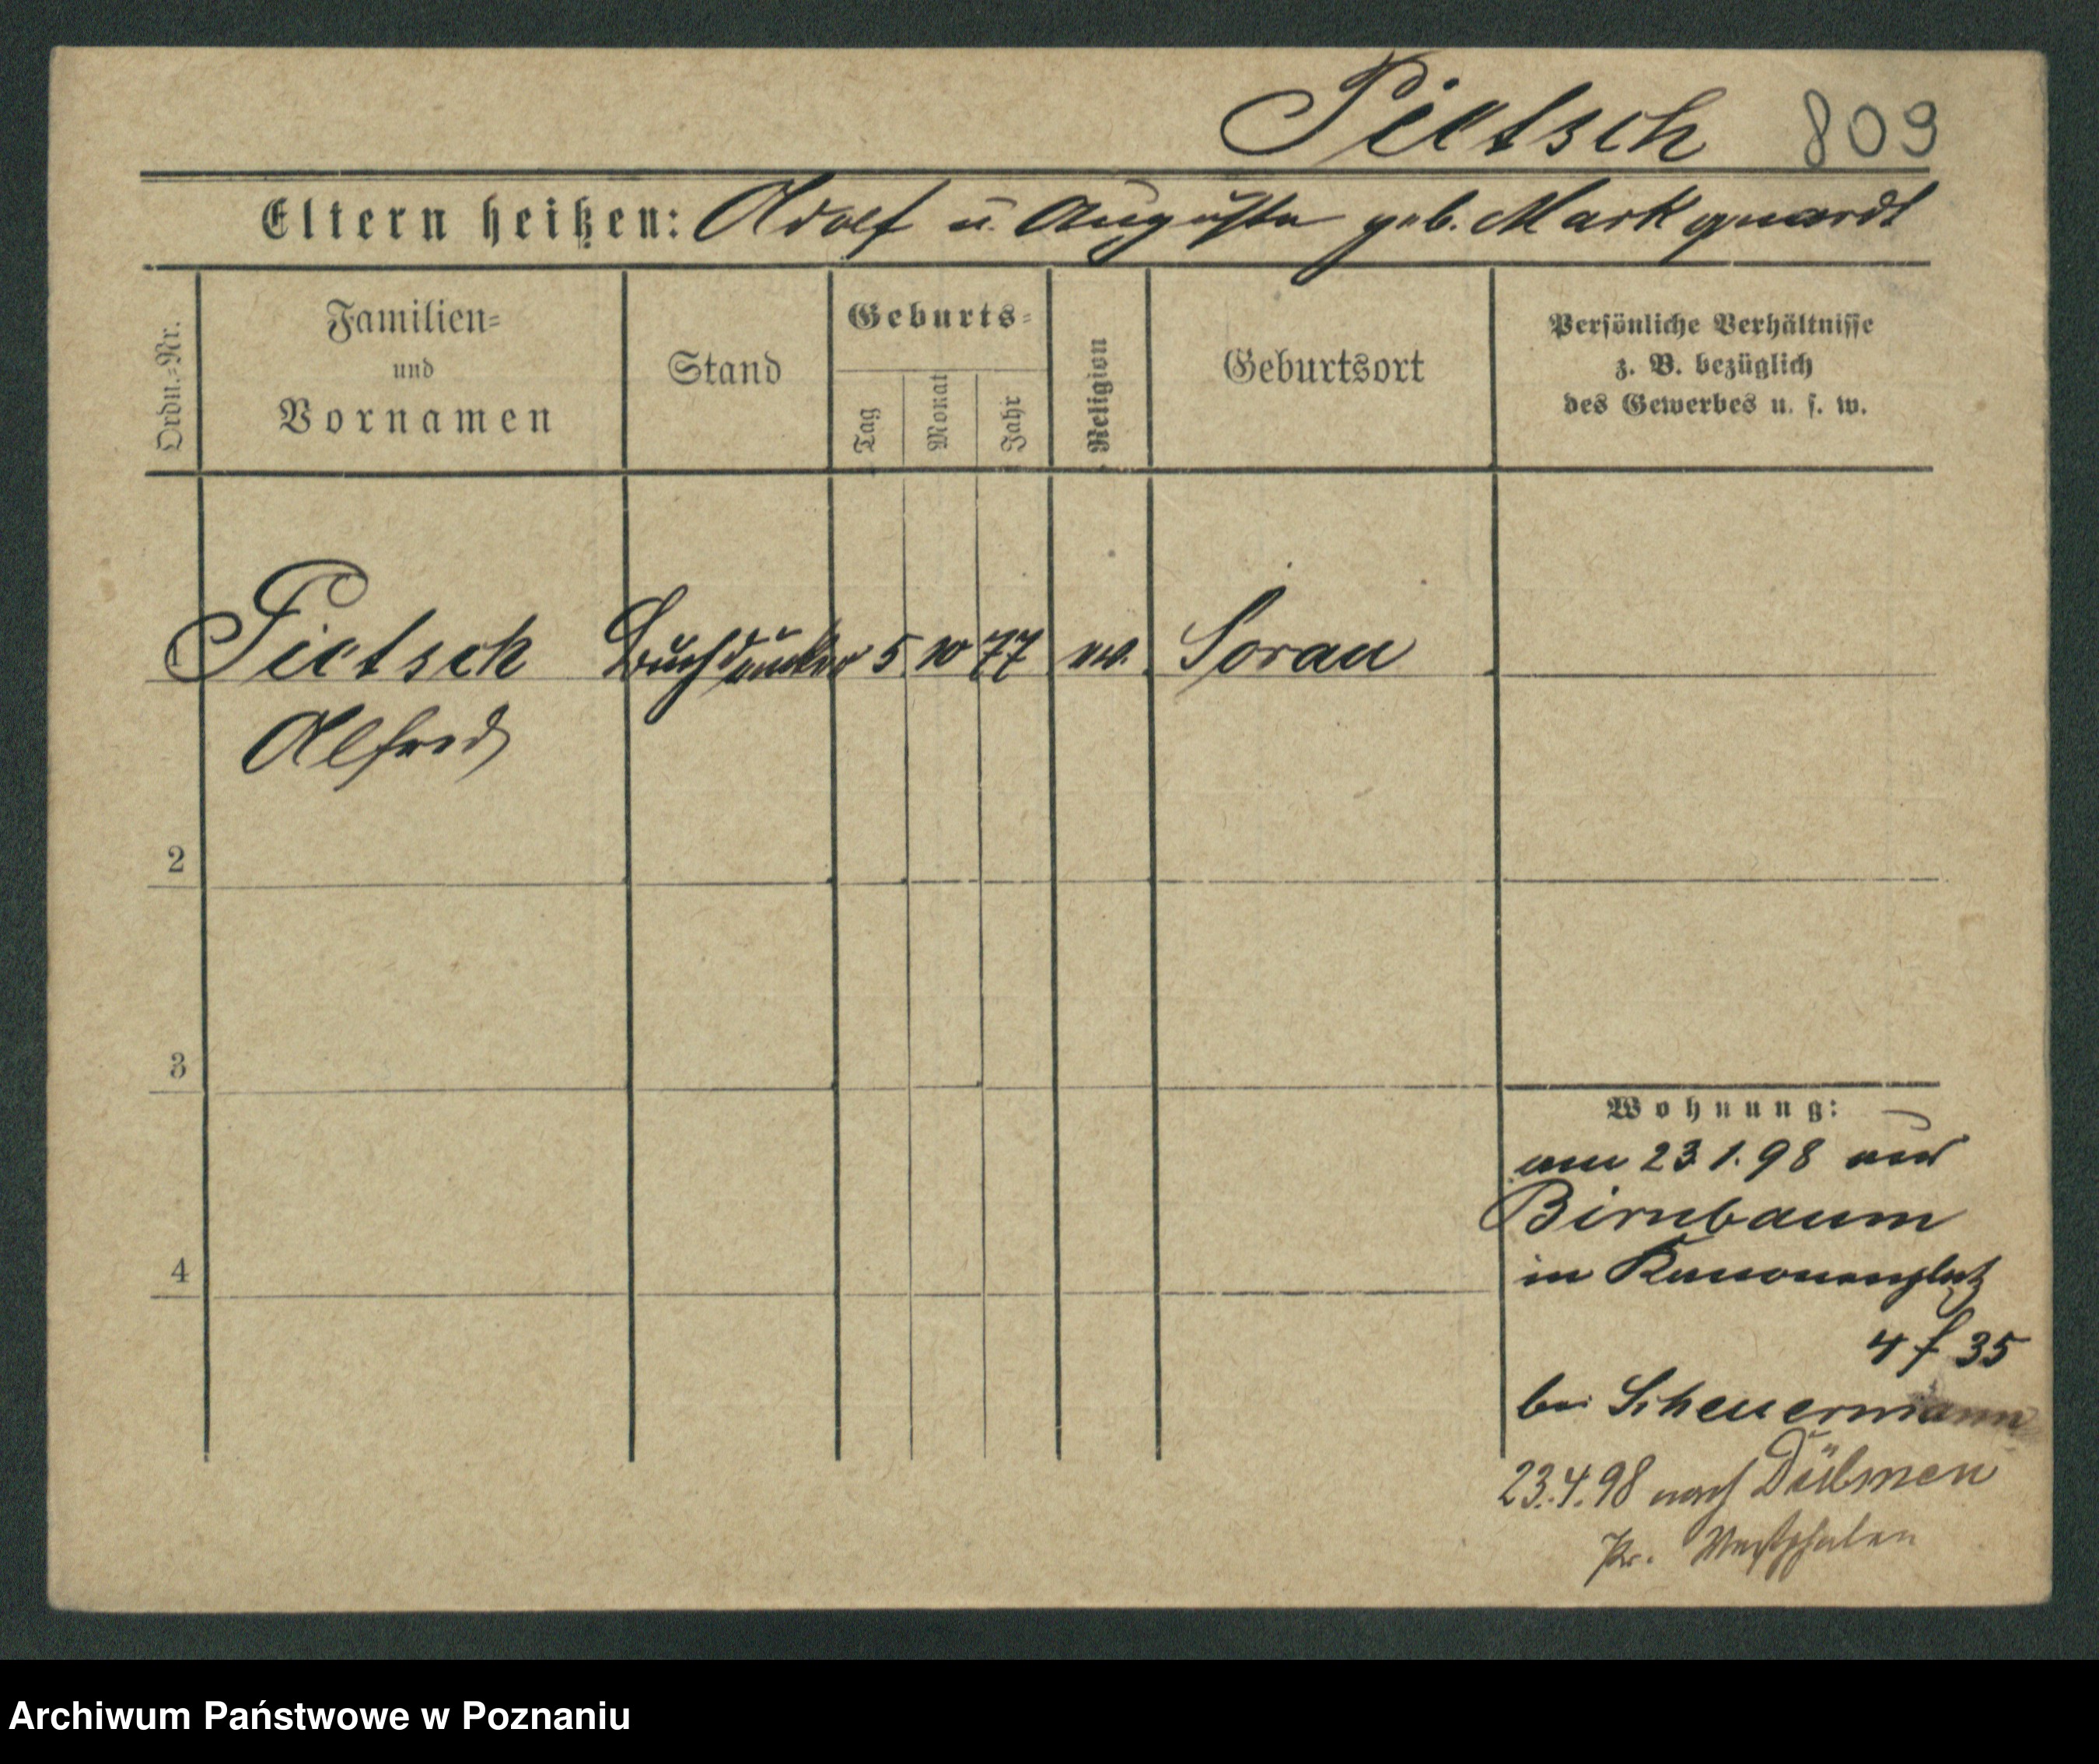 Pietsch 809
Eltern heißen: Adolf u. Auguste geb. Markquardt
Ordn.=Nr.
Familien=
und
Vornamen
Stand
Geburts=
Tag
Monat
Jahr
Religion
Geburtsort
Persönliche Verhältnisse
z. B. bezüglich
des Gewerbes u. s. w.
Pietsch Buchdrucker 5 10 77 ev. Sorau
Alfred
2
3
4
Wohnung:
am 23.1.98 aus
Birnbaum
in Kanonenplatz
4 f 35
bei Scheuermann
23.4.98 nach Dülmen
Pr. Westphalen
Archiwum Państwowe w Poznaniu